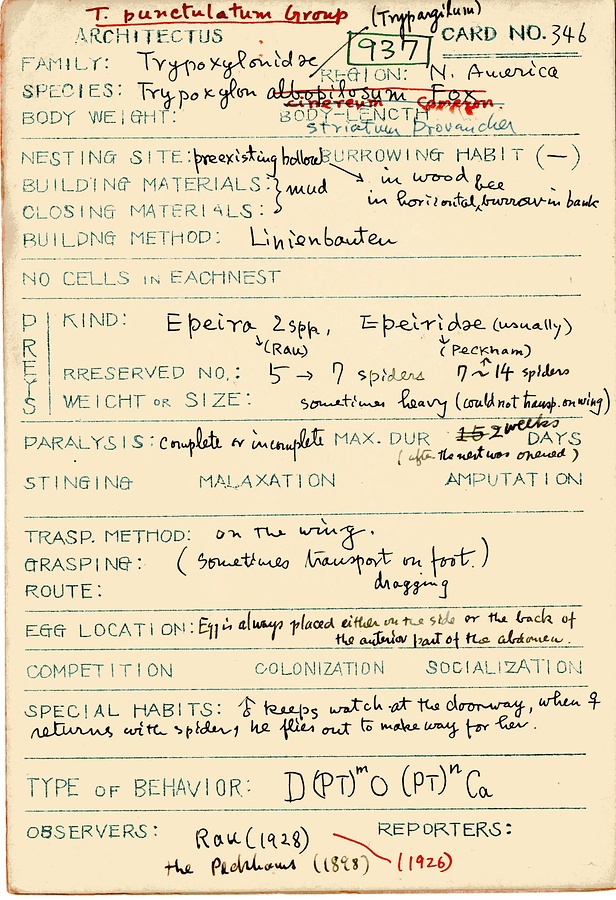 T. punctulatum Group (Trypargilum)
ARCHITECTUS 937 CARD NO. 346
FAMILY: Trypoxylonidae REGION: N. America
SPECIES: Trypoxylon albopilosum Fox
cinereum Cameron
BODY WEIGHT: BODY-LENGTH
striatum Provancher
NESTING SITE: preexisting hollow BURROWING HABIT (—)
BUILDING MATERIALS: } mud → in wood
CLOSING MATERIALS: in horizontal bee burrow in bank
BUILDNG METHOD: Linienbauten
NO CELLS IN EACHNEST
PREYS
KIND: Epeira 2spp., Epeiridae (usually)
(Rau) (Peckham)
RRESERVED NO.: 5 → 7 spiders 7~14 spiders
WEIGHT OR SIZE: sometimes heavy (could not transp. on wing)
PARALYSIS: complete or incomplete MAX. DUR 15 2 weeks DAYS
(after the nest was opened)
STINGING MALAXATION AMPUTATION
TRASP. METHOD: on the wing.
GRASPING: (sometimes transport on foot.)
ROUTE: dragging
EGG LOCATION: Egg is always placed either on the side or the back of
the anterior part of the abdomen.
COMPETITION COLONIZATION SOCIALIZATION
SPECIAL HABITS: ♂ keeps watch at the doorway, when ♀
returns with spider, he flies out to make way for her.
TYPE OF BEHAVIOR: D(PT)ᵐO (PT)ⁿ Ca
OBSERVERS: Rau (1928) REPORTERS:
the Peckhams (1898) (1926)